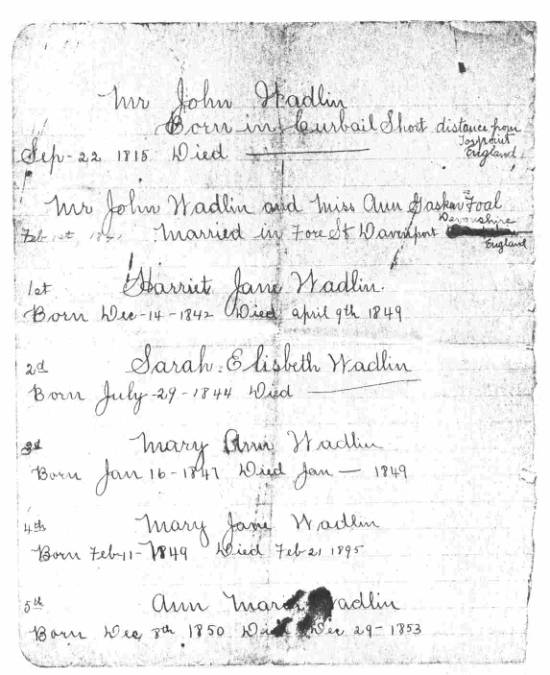 Mr John Wadlin
Born in Curbail Short distance from
Torpoint
England
Sep-22 1815 Died
Mr John Wadlin and Miss Ann Gasken Foal
Devonshire
Feb 1st Married in Fore St Davenport
England
1st Harriet Jane Wadlin.
Born Dec-14-1842 Died april 9th 1849
2d Sarah Elisbeth Wadlin
Born July-29-1844 Died
3d Mary Ann Wadlin
Born Jan 16-1847 Died Jan — 1849
4th Mary Jane Wadlin
Born Feb-11-1849 Died Feb 21 1895
5th Ann Wadlin
Born Dec 8th 1850 Died Dec 29-1853